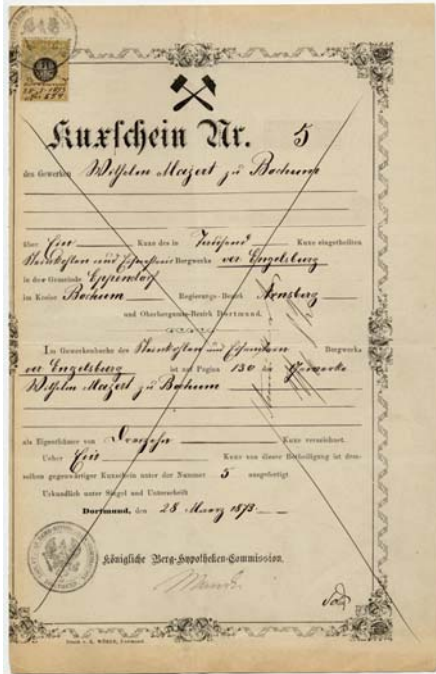 Kuxschein Nr. 5
des Gewerken Wilhelm Mazert zu Bochum
über Ein Kuxe des in Tausend Kuxe eingetheilten
Steinkohlen und Eisenstein Bergwerks ver Engelsburg
in der Gemeinde Eppendorf
im Kreise Bochum Regierungs-Bezirk Arnsberg
und Oberbergamts-Bezirk Dortmund.
Im Gewerkenbuche des Steinkohlen und Eisenstein Bergwerks
ver Engelsburg ist auf Pagina 130 der Gewerke
Wilhelm Mazert zu Bochum
als Eigenthümer von Dreizehn Kuxe verzeichnet.
Ueber Ein Kuxe von dieser Betheiligung ist dem-
selben gegenwärtiger Kuxschein unter der Nummer 5 ausgefertigt
Urkundlich unter Siegel und Unterschrift
Dortmund, den 28 März 1873.
Königliche Berg-Hypotheken-Commission.